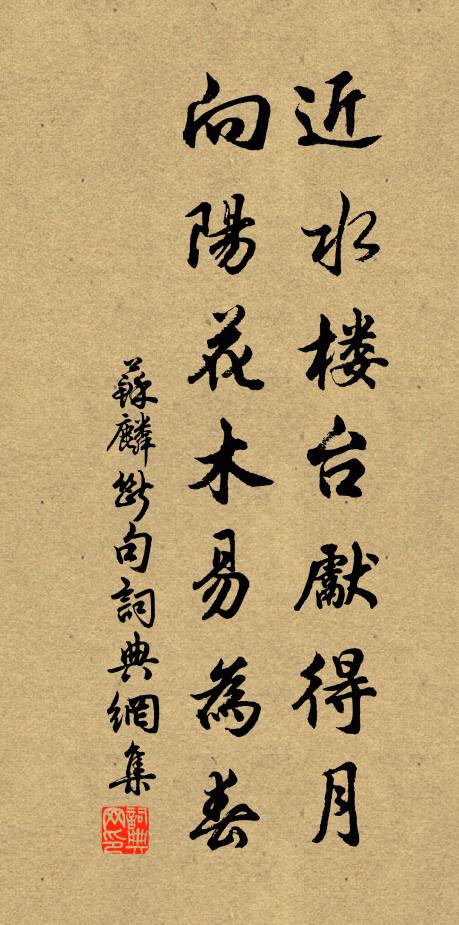 近水楼台獻得月
向陽花木易為春
蘇麟斷句詞典網集
詞典網印